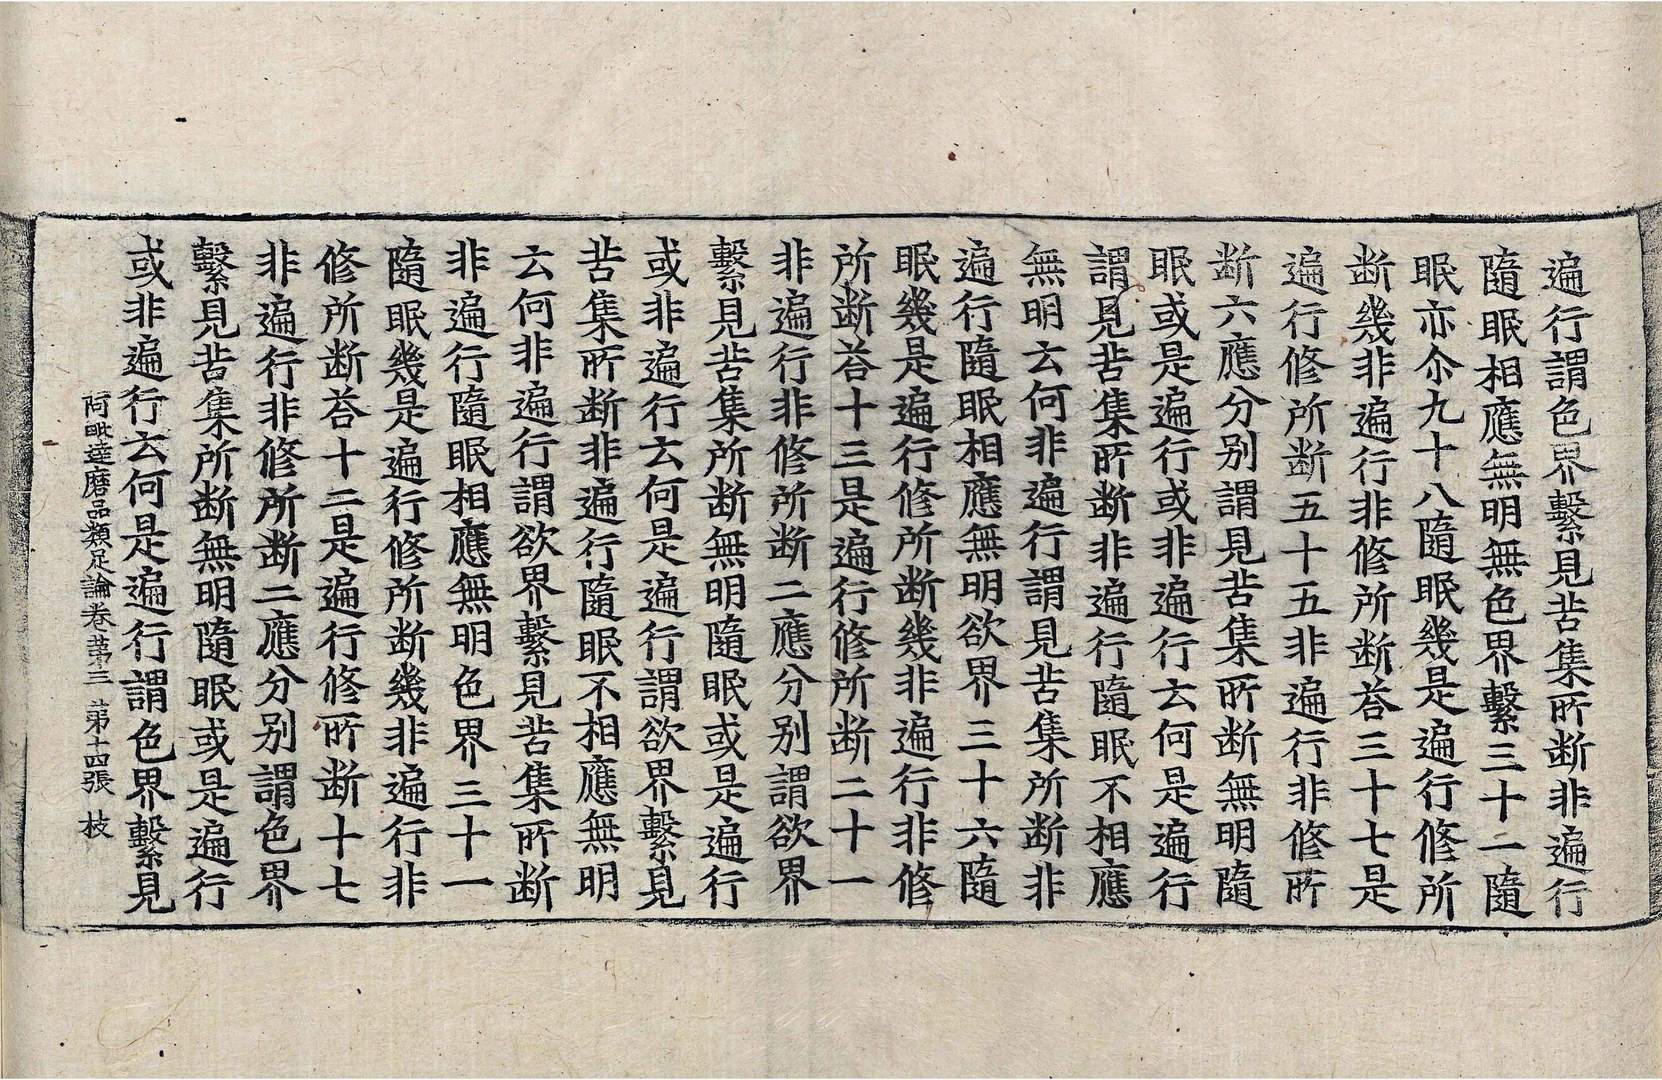 遍行謂色界繫見苦集所断非遍行
隨眠相應無明無色界繫三十一隨
眠亦尒九十八隨眠幾是遍行修所
断幾非遍行非修所断荅三十七是
遍行修所断五十五非遍行非修所
断六應分別謂見苦集所断無明隨
眠或是遍行或非遍行云何是遍行
謂見苦集所断非遍行隨眠不相應
無明云何非遍行謂見苦集所断非
遍行隨眠相應無明欲界三十六隨
眠幾是遍行修所断幾非遍行非修
所断荅十三是遍行修所断二十一
非遍行非修所断二應分別謂欲界
繫見苦集所断無明隨眠或是遍行
或非遍行云何是遍行謂欲界繫見
苦集所断非遍行隨眠不相應無明
云何非遍行謂欲界繫見苦集所断
非遍行隨眠相應無明色界三十一
隨眠幾是遍行修所断幾非遍行非
修所断荅十二是遍行修所断十七
非遍行非修所断二應分別謂色界
繫見苦集所断無明隨眠或是遍行
或非遍行云何是遍行謂色界繫見
阿毗達磨品類足論卷苐三 苐十四張 枝